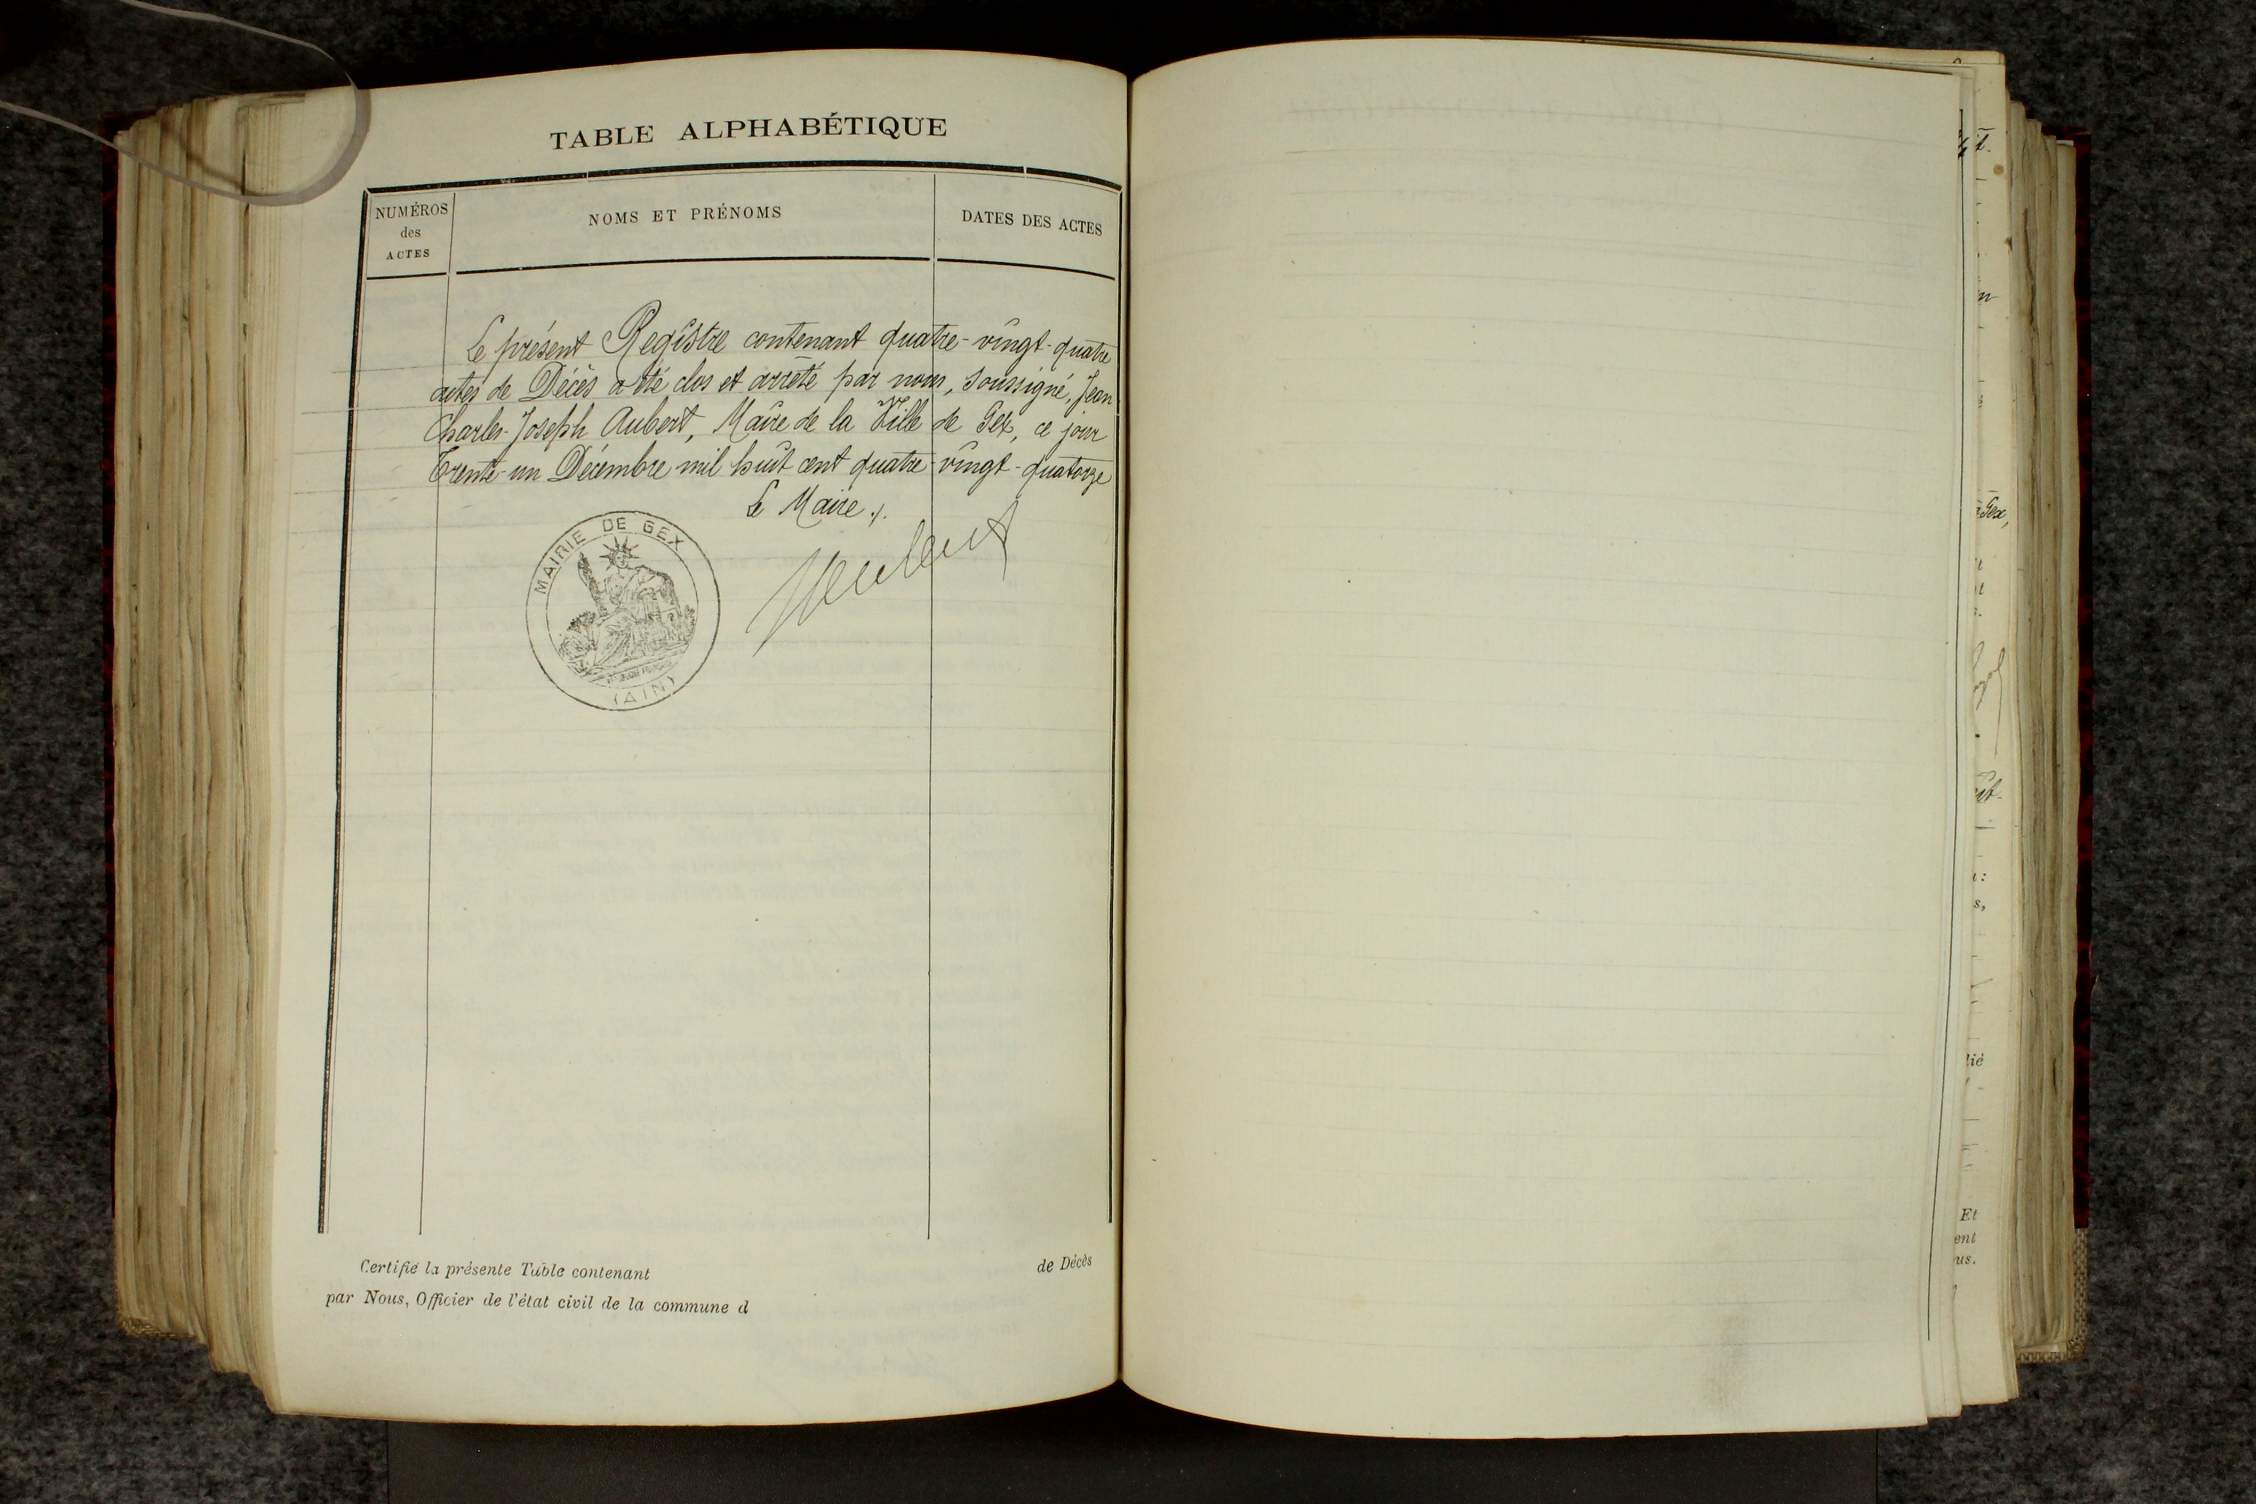 TABLE ALPHABÉTIQUE
NUMÉROS
des
ACTES
NOMS ET PRÉNOMS
DATES DES ACTES
Le présent Registre contenant quatre-vingt-quatre
actes de Décès a été clos et arrêté par nous, soussigné, Jean
Charles-Joseph Aubert, Maire de la Ville de Gex, ce jour
Trente-un Décembre mil huit cent quatre-vingt-quatorze
Le Maire.
MAIRIE DE GEX
(AIN)
Certifié la présente Table contenant de Décès
par Nous, Officier de l'état civil de la commune d
Gex,
Et